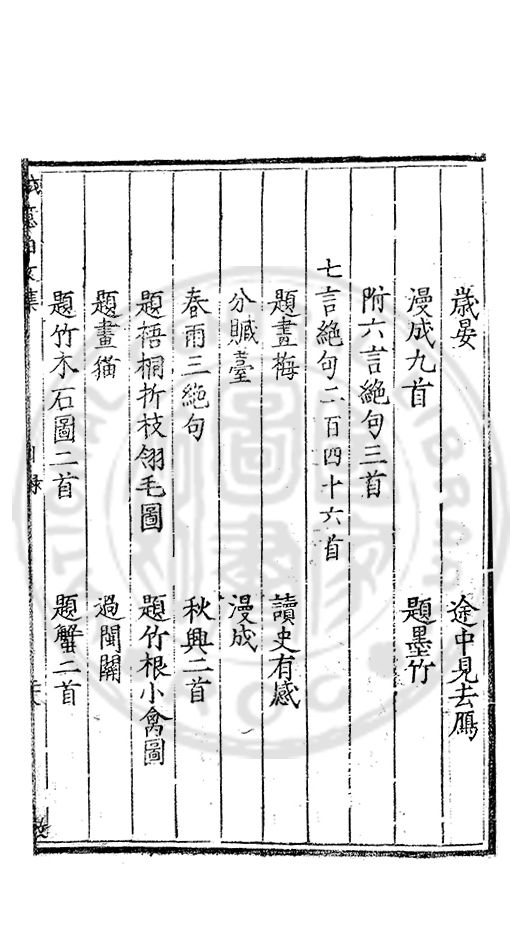 歲晏 途中見去鴈
漫成九首 題墨竹
附六言絕句三首
七言絕句二百四十六首
題畫梅 讀史有感
分贓臺 漫成
春雨三絕句 秋興二首
題梧桐折枝翎毛圖 題竹根小禽圖
題畫猫 過閩關
題竹木石圖二首 題蟹二首
誠意伯文集 目錄